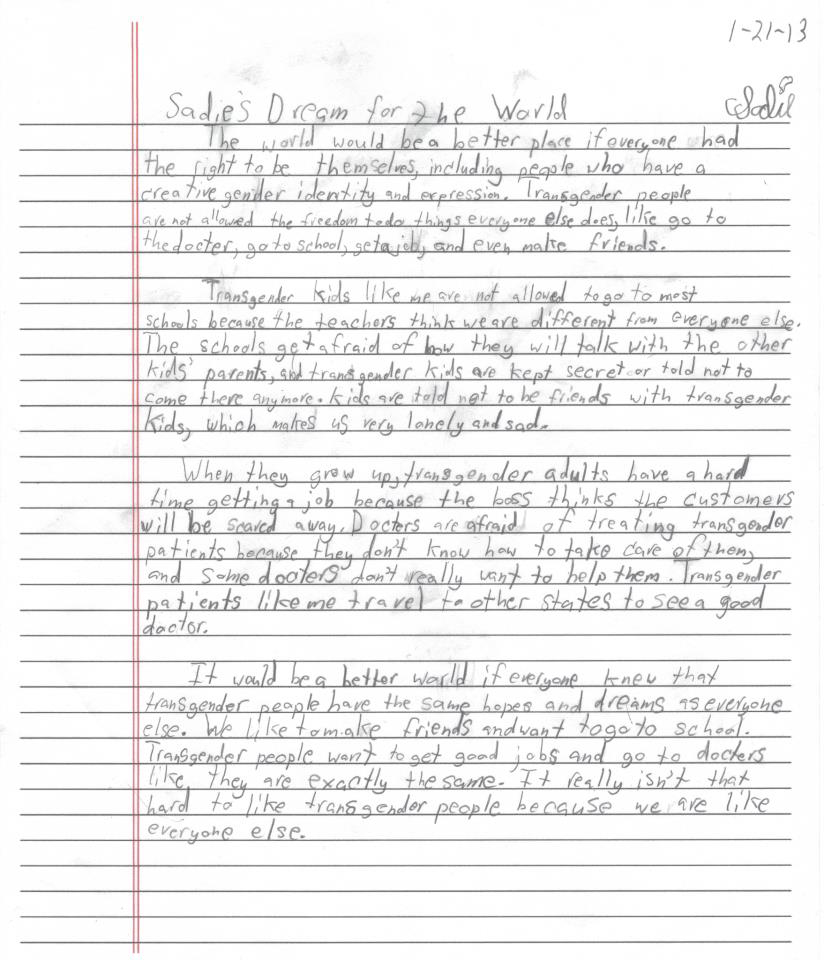 1-21-13
Sadie's Dream for the World
Sadie
The world would be a better place if everyone had
the right to be themselves, including people who have a
creative gender identity and expression. Transgender people
are not allowed the freedom to do things everyone else does, like go to
the docter, go to school, get a job, and even make friends.
Transgender kids like me are not allowed to go to most
schools because the teachers think we are different from everyone else.
The schools get afraid of how they will talk with the other
kids' parents, and transgender kids are kept secret or told not to
come there anymore. Kids are told not to be friends with transgender
kids, which makes us very lonely and sad.
When they grow up, transgender adults have a hard
time getting a job because the boss thinks the customers
will be scared away. Docters are afraid of treating transgender
patients because they don't know how to take care of them,
and some docters don't really want to help them. Transgender
patients like me travel to other states to see a good
doctor.
It would be a better world if everyone knew that
transgender people have the same hopes and dreams as everyone
else. We like to make friends and want to go to school.
Transgender people want to get good jobs and go to docters
like they are exactly the same. It really isn't that
hard to like transgender people because we are like
everyone else.